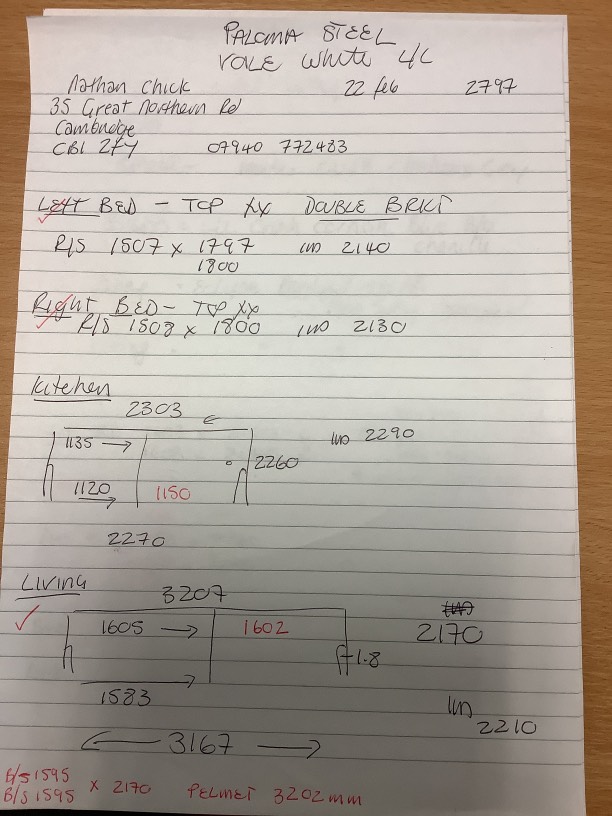 PALOMA STEEL
VOLE White 4/L
Nathan Chick 22 feb 2797
35 Great Northern Rd
Cambridge
CB1 2FY 07940 772483
LEFT BED - TOP XX DOUBLE BRKT
R/S 1507 x 1797 2140
1800
Right BED - TOP XX
R/S 1508 x 1800 2130
Kitchen
2303
1135 → 2290
2260
1120 1150
2270
Living
3207
1605 → 1602 2170
1.8
1583
2210
← 3167 →
B/S 1595
B/S 1595 x 2170 PELMET 3202mm